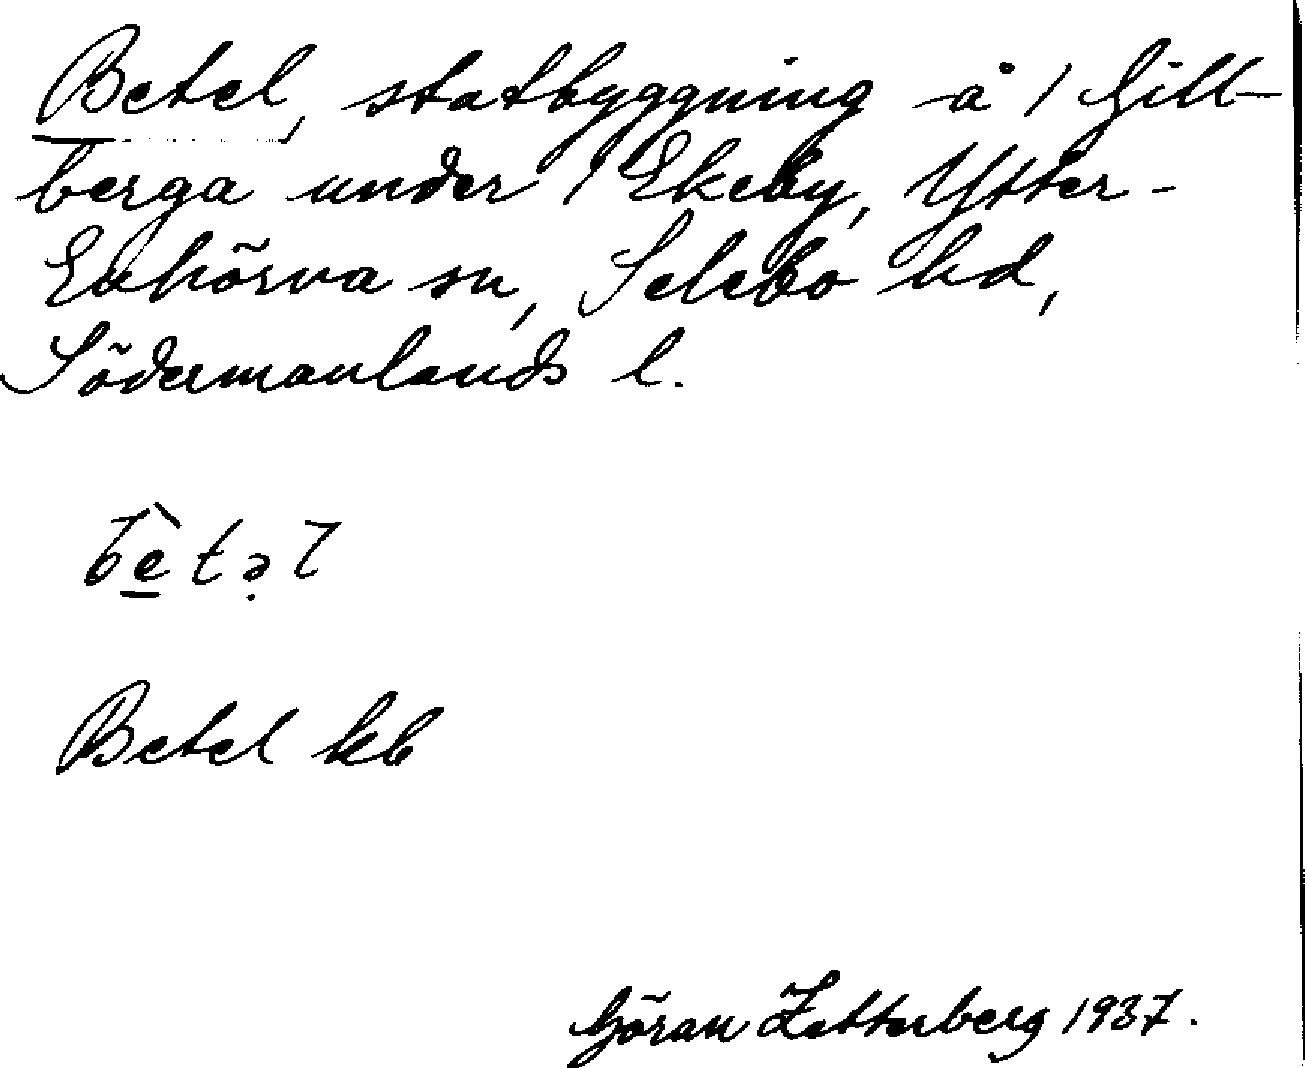 Betel, statbyggning å 1 Gill-
berga under 1 Ekeby, Ytter-
Enhörna sn, Selebo hd,
Södermanlands l.
bè̱tə̣l
Betel kb
Göran Zetterberg 1937.